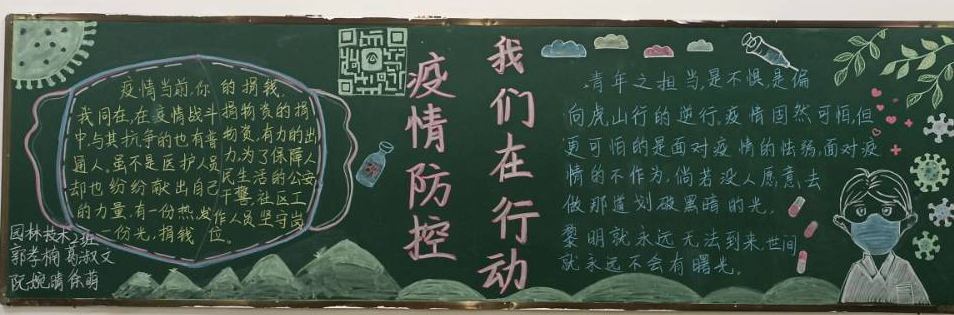 疫情当前,你
我同在,在疫情战斗
中,与其抗争的也有普
通人。虽不是医护人员
却也纷纷献出自己
的力量,有一份热,发
一份光,捐钱
的捐钱,
捐物资的捐
物资,有力的出
力,为了保障人
民生活的公安
干警,社区工
作人员坚守岗
位。
园林技术2班
郭孝楠 葛淑文
阮婉晴 徐萌
疫情防控
我们在行动
青年之担当,是不惧,是偏
向虎山行的逆行,疫情固然可怕,但
更可怕的是面对疫情的怯弱,面对疫
情的不作为,倘若没人愿意去
做那道划破黑暗的光,
黎明就永远无法到来,世间
就永远不会有曙光。